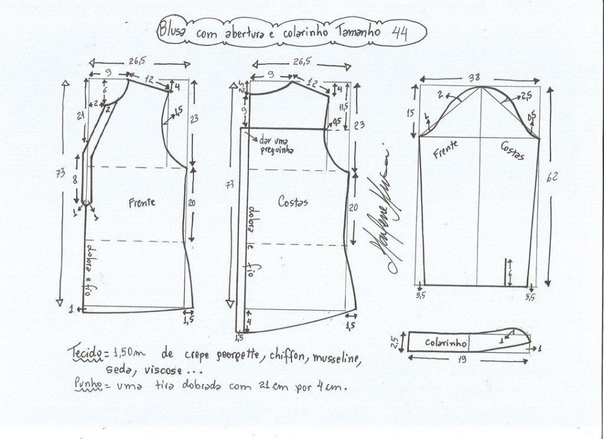 Blusa com abertura e colarinho Tamanho 44
26,5
9
12
4
6
2
2
21
1,5
23
73
8
1
1
Frente
20
dobra e fio
1
1,5
26,5
9
12
4
2,5
11,5
9
0,5
dar uma preguinha
23
73
Costas
20
dobra e fio
4
1,5
1,5
38
2
2,5
15
1
0,5
Frente
Costas
62
6
5,5
5,5
2,5
Colarinho
1
1
19
Tecido = 1,50m de crepe georgette, chiffon, musseline,
seda, viscose ...
Punho = uma tira dobrada com 21 cm por 4 cm.